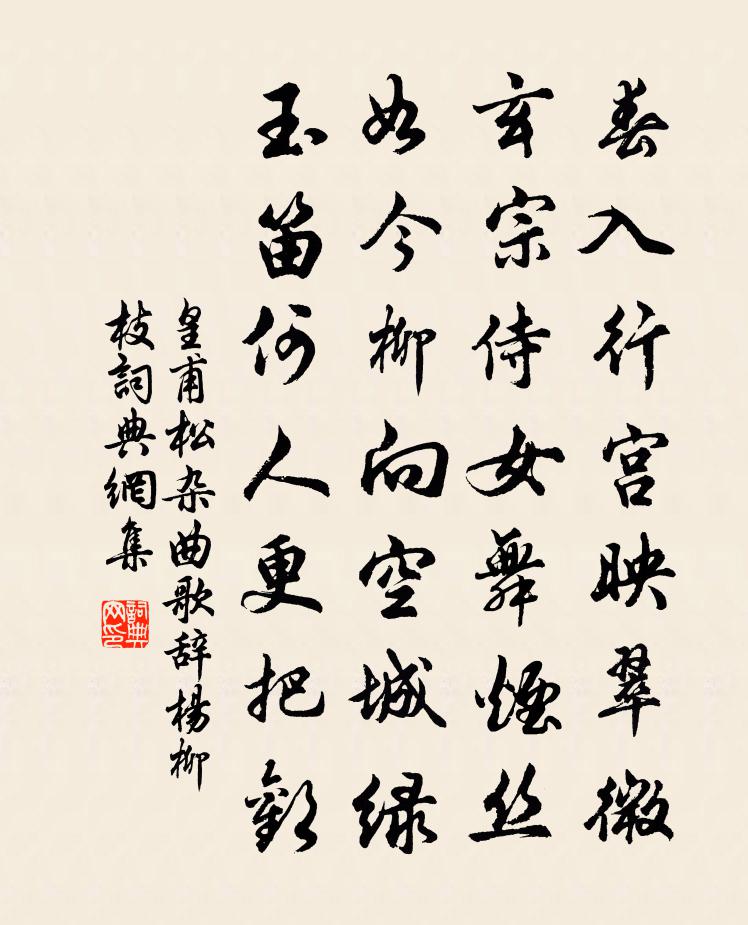 春入行宫映翠微
玄宗侍女舞煙丝
如今柳向空城绿
玉笛何人更把吹
皇甫松杂曲歌辞楊柳
枝詞典網集
詞典
网印